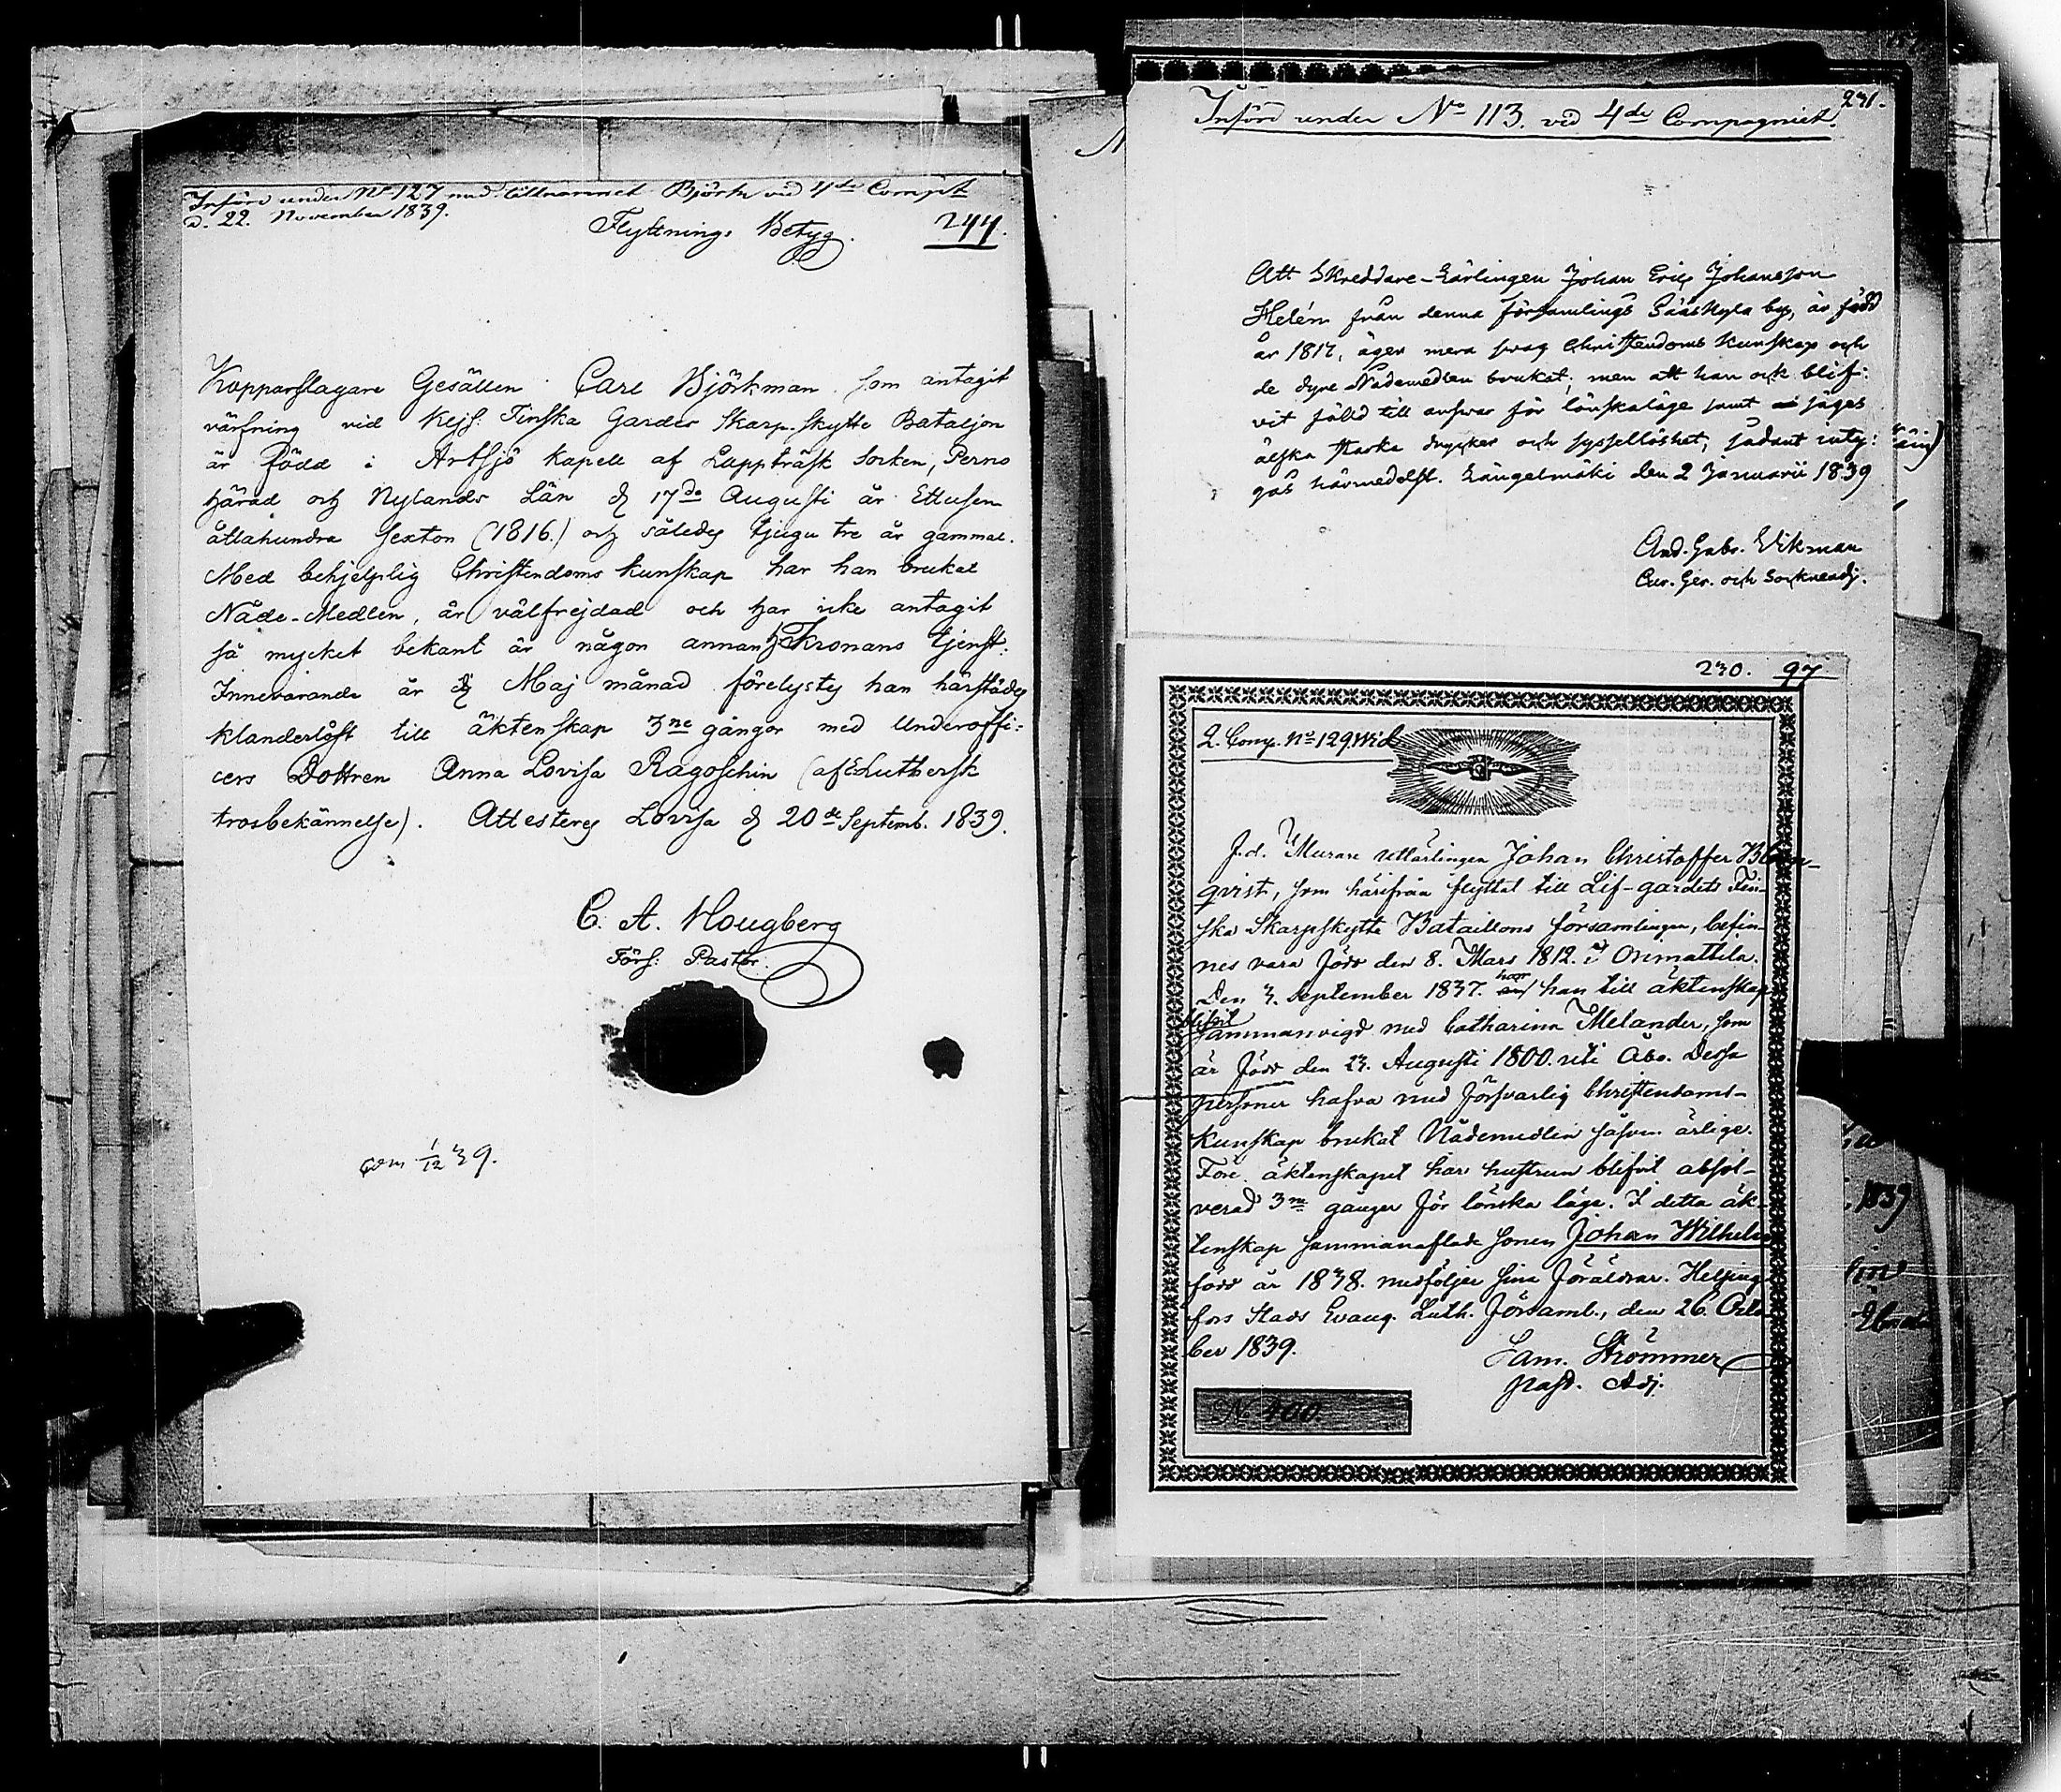 Införd under No 127 med tillnamnet Björk vid 4de Comp:t
d. 22. November 1839.
Flyttnings Betyg.
244.
Kopparslagare Gesällen Carl Björkman som antagit
värfning vid Kejs: Finska Gardes Skarp-skytte Bataljon
är född i Artsjö Kapell af Lappträsk Socken, Perno
härad och Nylands Län d. 17de Augusti år Ettusen
åttahundra Sexton (1816.) och således tjugu tre år gammal.
Med behjelplig Christendoms kunskap har han brukat
Nåde-Medlen, är välfrejdad och har icke antagit
så mycket bekant är någon annan Kronans tjenst.
Innevarande år Maj månad förelystes han härstädes
klanderlöst till äktenskap 3ne gångor med Underoffi-
cers Dottren Anna Lovisa Ragoschin (af E Luthersk
trosbekännelse). Attesteras Lovisa d. 20de Septemb. 1839.
C. A. Hougberg
Förs: Pastor.
1/12 39.
231.
Införd under No 113. vid 4de Compagniet.
Att Skreddare-Lärlingen Johan Eric Johansson
Helén från denna församlings Sääskyla by, är född
år 1817, äger mera svag Christendoms kunskap och
de dyre Nådemedlen brukat; men att han ock blif-
vit fälld till answar för lönskaläge samt säges
älska starka drycker och sysslolöshet; sådant inty-
gas härmedelst. Längelmäki den 2 Januarii 1839
And. Gabr. Wikman
Cur. Ger. och Sockneadj.
230. 97
2. Comp. No 129. Wid
F.d. Murare utlärlingen Johan Christoffer Blom-
qvist, som härifrån flyttat till Lif-gardets Fin-
ska Skarpskytte Bataillons församlingen, befin-
nes vara född den 8. Mars 1812. i Orimattila.
Den 3. September 1837. har han till äktenskap
blifvit
sammanvigd med Catharina Melander, som
är född den 23. Augusti 1800. uti Åbo. Dessa
personer hafva med försvarlig Christendoms-
kunskap brukat Nådemedlen såsom ärlige.
Före äktenskapet har hustrun blifvit absol-
verad 3ne gånger för lönska läge. I detta äk-
tenskap sammanaflade sonen Johan Wilhelm
född år 1838. medföljer sina föräldrar. Helsing-
fors Stads Evang. Luth. Församl., den 26. Octo-
ber 1839.
Sam. Strömmer
Past. Adj.
No 400.
1839